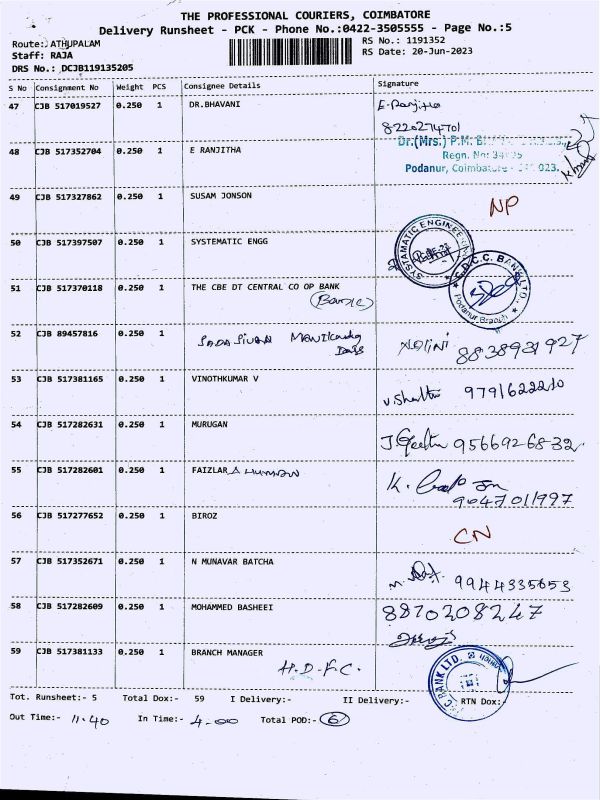 THE PROFESSIONAL COURIERS, COIMBATORE
Delivery Runsheet - PCK - Phone No.:0422-3505555 - Page No.:5
Route: ATHUPALAM
RS No.: 1191352
Staff: RAJA
RS Date: 20-Jun-2023
DRS No.: DCJB119135205
S No Consignment No Weight PCS Consignee Details Signature
47 CJB 517019527 0.250 1 DR.BHAVANI E-Ranjitha
8220274701
Dr.(Mrs.) P.M.
48 CJB 517352704 0.250 1 E RANJITHA Regn. No:
Podanur, Coimbatore - 023.
49 CJB 517327862 0.250 1 SUSAM JONSON NP
50 CJB 517397507 0.250 1 SYSTEMATIC ENGG SYSTAMATIC ENGINEE
51 CJB 517370118 0.250 1 THE CBE DT CENTRAL CO OP BANK C.D.C.C. BANK LTD.
(Bank) Podanur Branch
52 CJB 89457816 0.250 1 SADASIVAN MANIKanda Dass NALINI 8838931927
53 CJB 517381165 0.250 1 VINOTHKUMAR V 9791622210
54 CJB 517282631 0.250 1 MURUGAN J. Geetha 9566926832
55 CJB 517282601 0.250 1 FAIZLAR K.
9047011997
56 CJB 517277652 0.250 1 BIROZ CN
57 CJB 517352671 0.250 1 N MUNAVAR BATCHA 9944335653
58 CJB 517282609 0.250 1 MOHAMMED BASHEEI 8870208247
59 CJB 517381133 0.250 1 BRANCH MANAGER
H.D.F.C. C BANK LTD.
Tot. Runsheet:- 5 Total Dox:- 59 I Delivery:- II Delivery:- RTN Dox:-
Out Time:- 11.40 In Time:- 4.00 Total POD:- 6